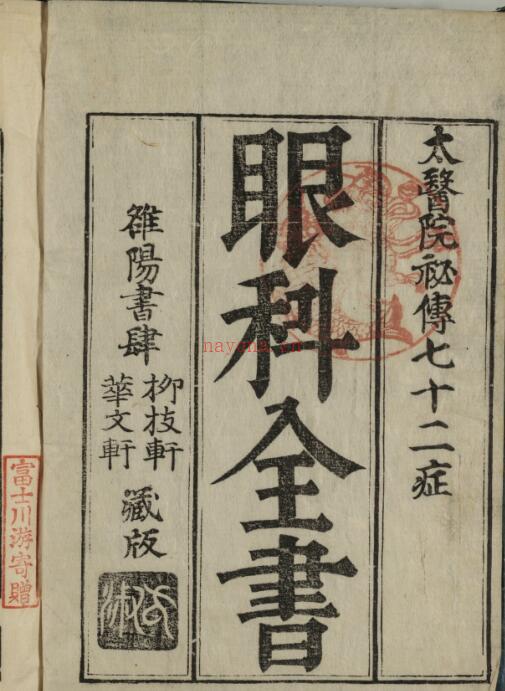 太醫院祕傳七十二症
眼科全書
雒陽書肆
柳枝軒
華文軒
藏版
富士川游寄贈
nayona.vn